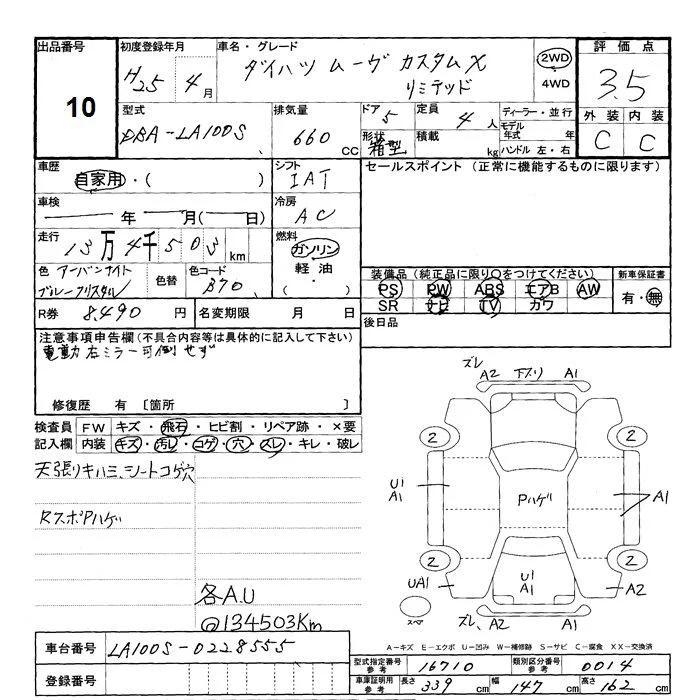 出品番号
10
初度登録年月
H25年4月
車名・グレード
ダイハツ ムーヴ カスタムX
リミテッド
2WD
4WD
評価点
3.5
外装 内装
C C
型式
DBA-LA100S
排気量
660 cc
ドア 5
形状 箱型
定員 4 人
積載 kg
ディーラー・並行
モデル年式 年
ハンドル 左・右
車歴
自家用・( )
シフト
IAT
セールスポイント (正常に機能するものに限ります)
車検
年 月( 日)
冷房
AC
走行
13万4千503 km
燃料
ガソリン
軽油
・
色 アーバンナイト
ブルークリスタル
色替
色コード
B70
装備品(純正品に限り○をつけてください)
PS PW ABS エアB AW
SR ナビ TV カワ
新車保証書
有・無
R券 8,490 円
名変期限 月 日
後日品
注意事項申告欄(不具合内容等は具体的に記入して下さい)
電動左ミラー可倒せず
修復歴 有 〔箇所 〕
検査員 FW キズ・飛石・ヒビ割・リペア跡・×要
記入欄 内装 キズ・汚レ・コゲ・穴・スレ・キレ・破レ
天張りキハミ、シートコゲ穴
RスポPハゲ
各A.U
@134503Km
ズレ A2 下スリ A1
2 2
U1
A1
Pハゲ
A1
2 2
UA1
U1
A1
A2
スペ
ズレ、A2 A1
A-キズ E-エクボ U-凹み W-補修跡 S-サビ C-腐食 XX-交換済
車台番号 LA100S-0228555
登録番号
型式指定番号
参考
16710
類別区分番号
参考
0014
車庫証明用
参考
長さ 339 cm
幅 147 cm
高さ 162 cm